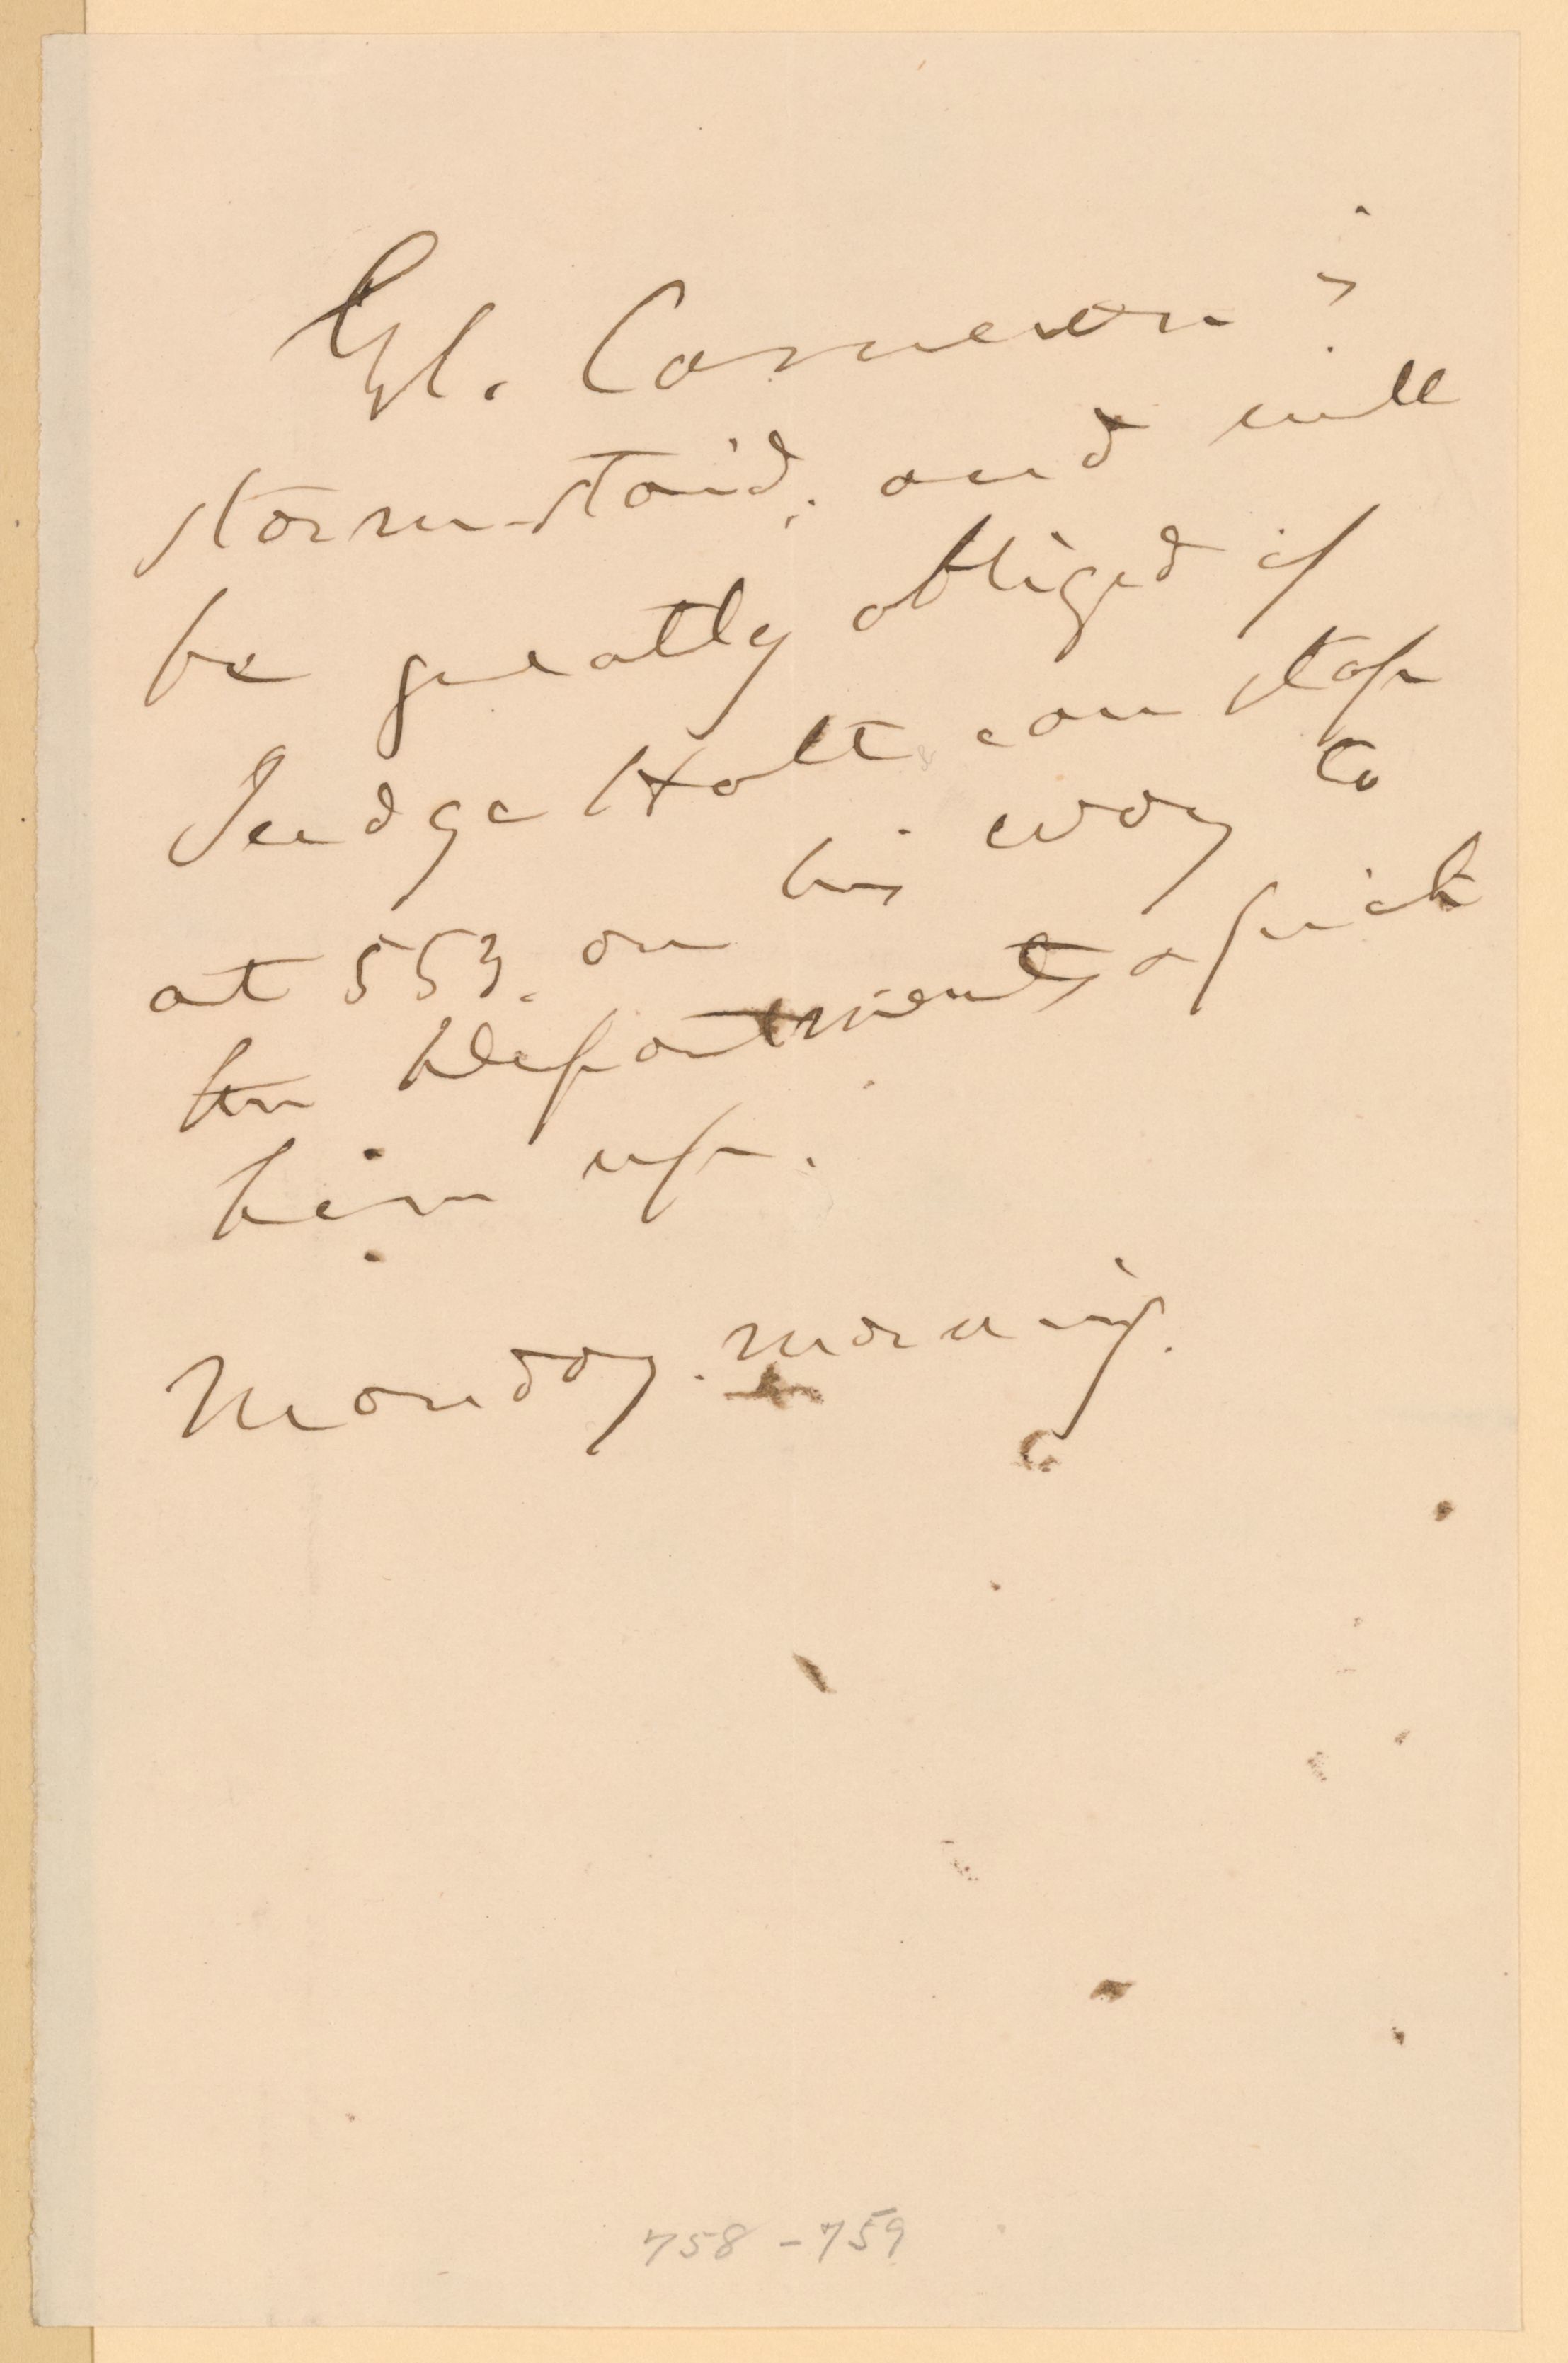 Gl. Cameron is
storm-staid, and will
be greatly obliged if
Judge Holt, can stop
at 553, on his way to
the Department, & pick
him up.
Monday. morning.
758 - 759